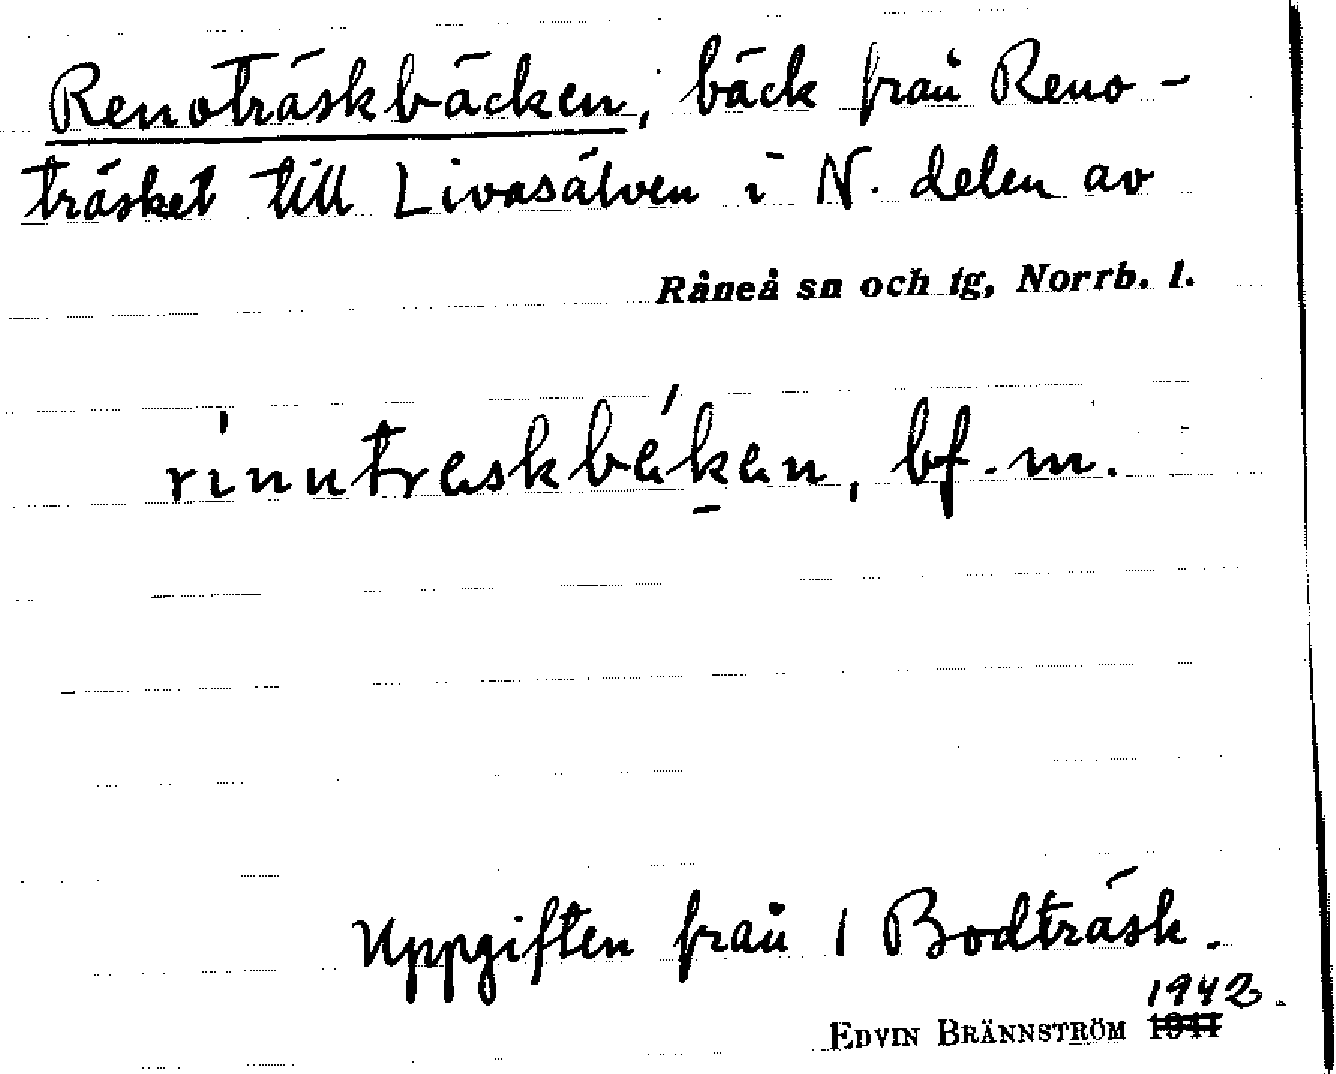 Renoträskbäcken, bäck från Reno-
träsket till Livasälven i N. delen av
Råneå sn och tg, Norrb. l.
rinutraskbákan, bf. m.
Uppgiften från 1 Bodträsk.
1942.
EDVIN BRÄNNSTRÖM 1941